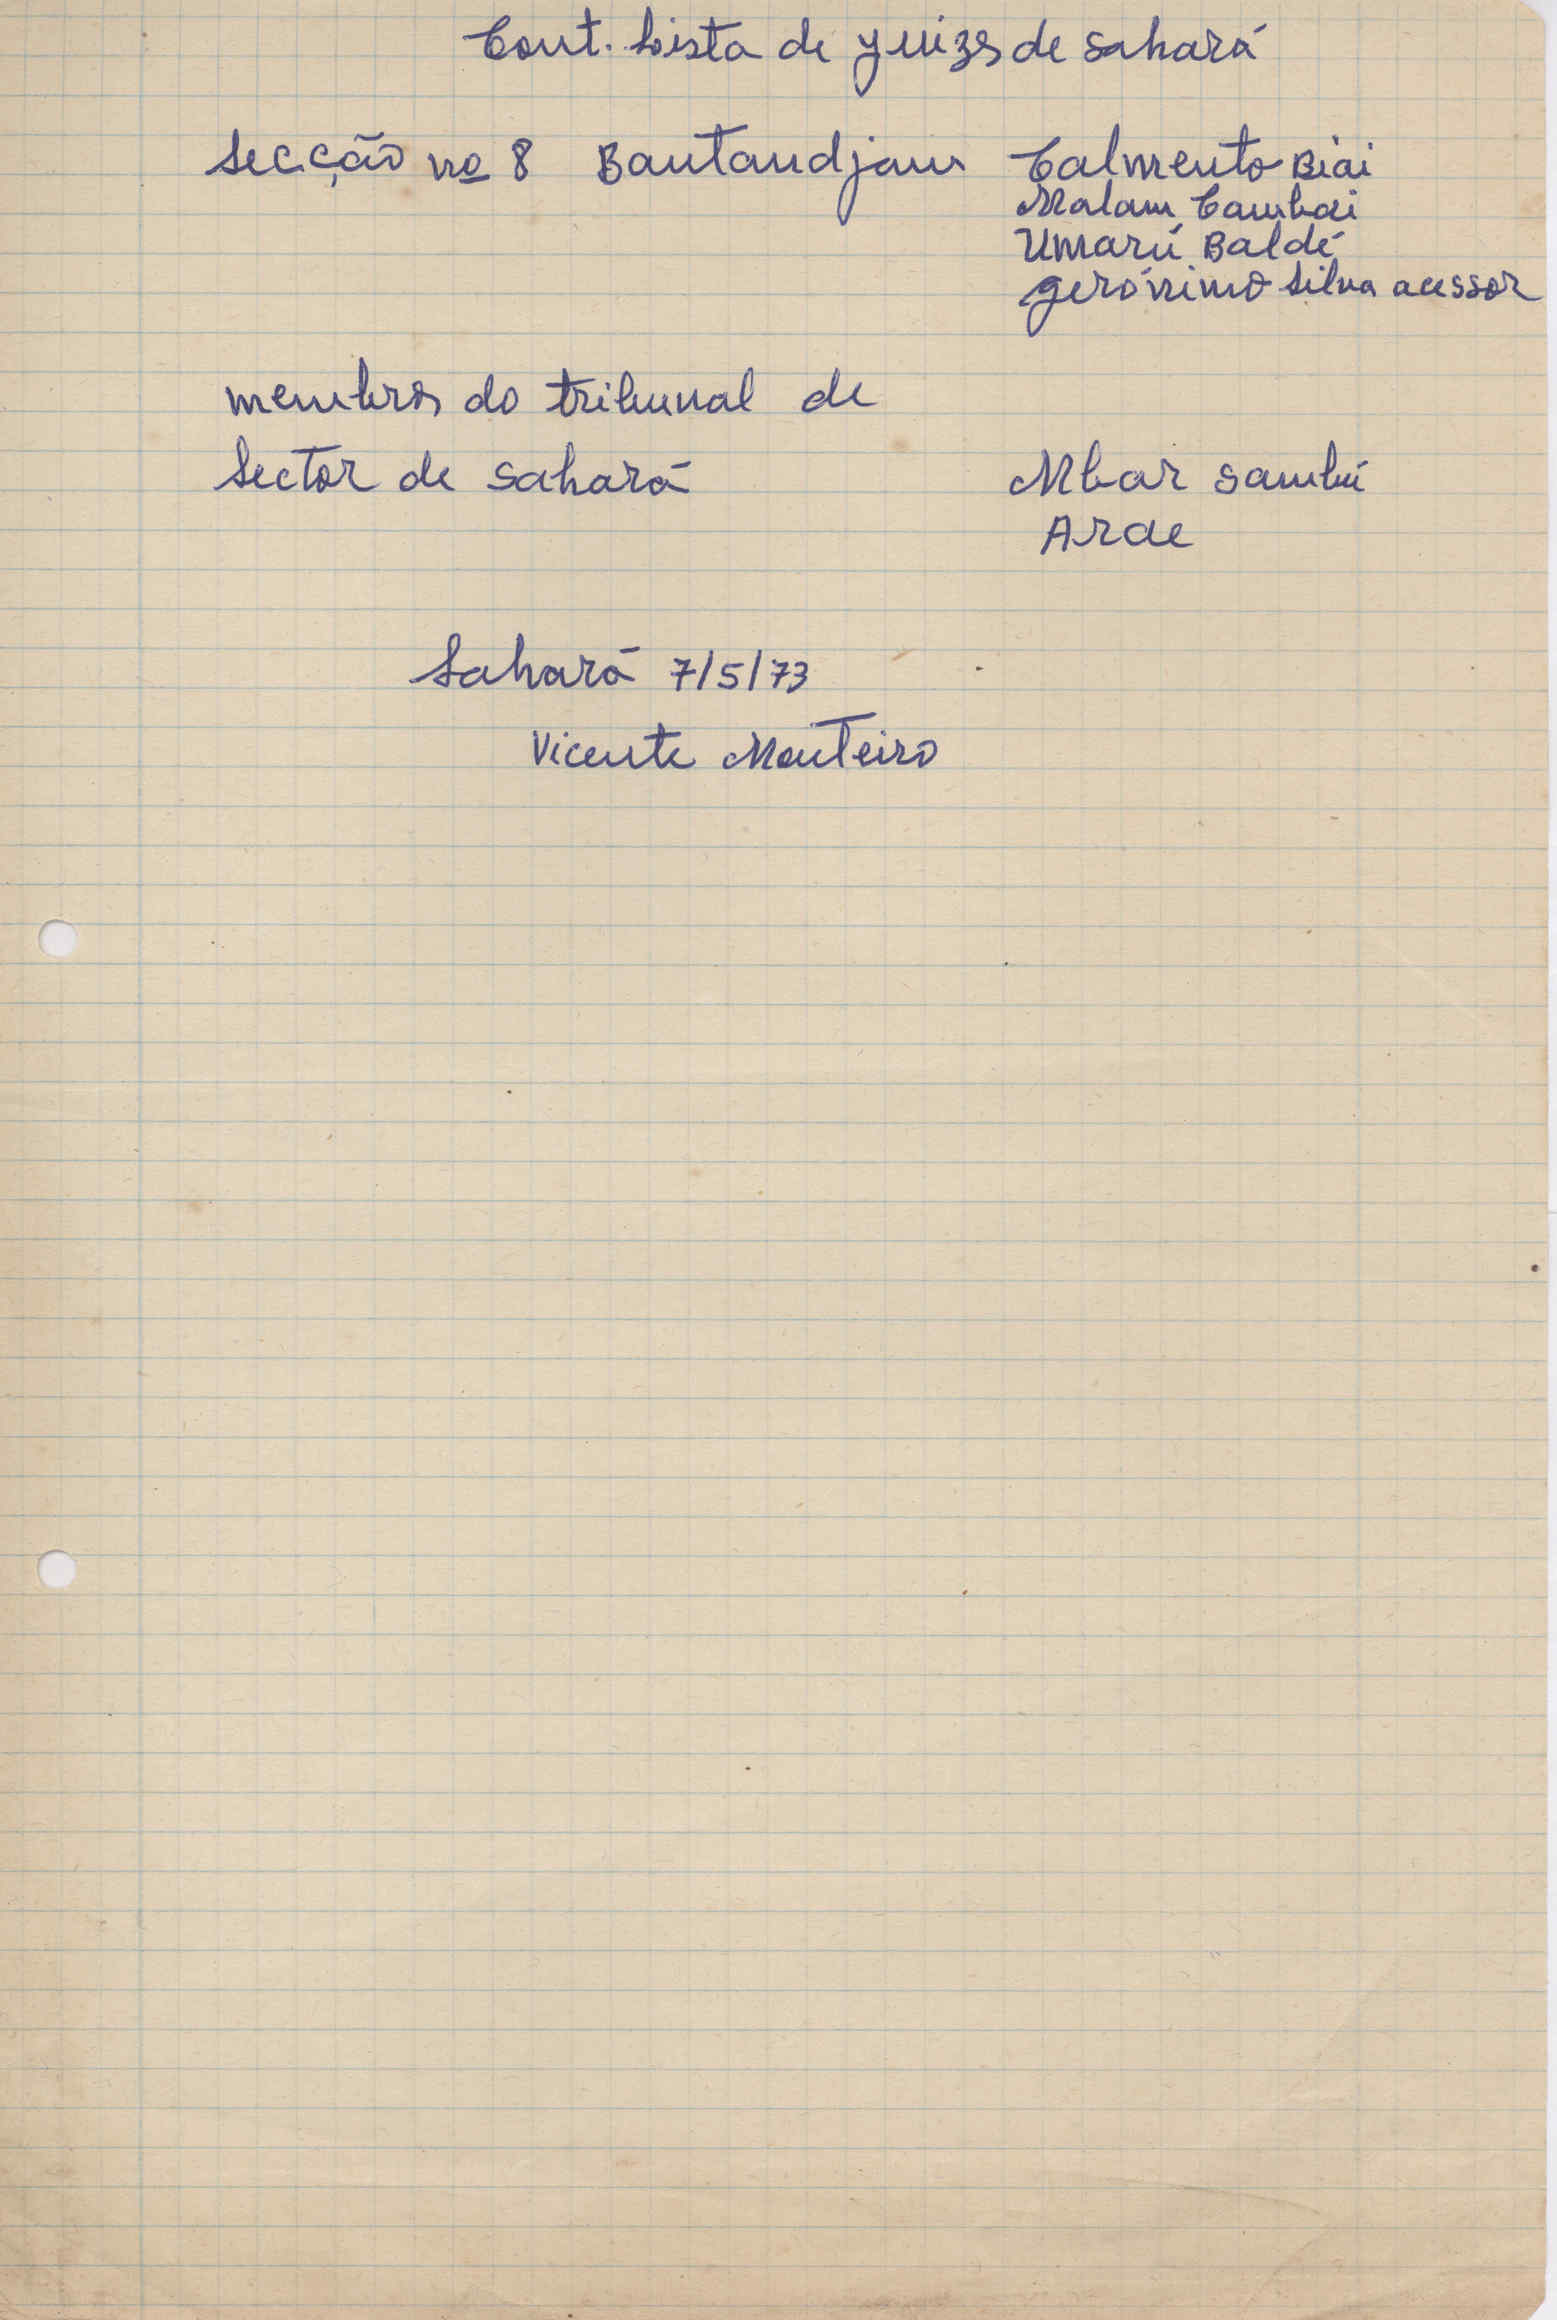 Cont. Lista de yuizs de Sahará
Secção nº 8 Bantandjam Calmento Biai
Malam Cambai
Umarú Baldé
Gerónimo Silva acessor
membros do tribunal de
Sector de Sahará Mbar Sambú
Arae
Sahará 7/5/73
Vicente Monteiro